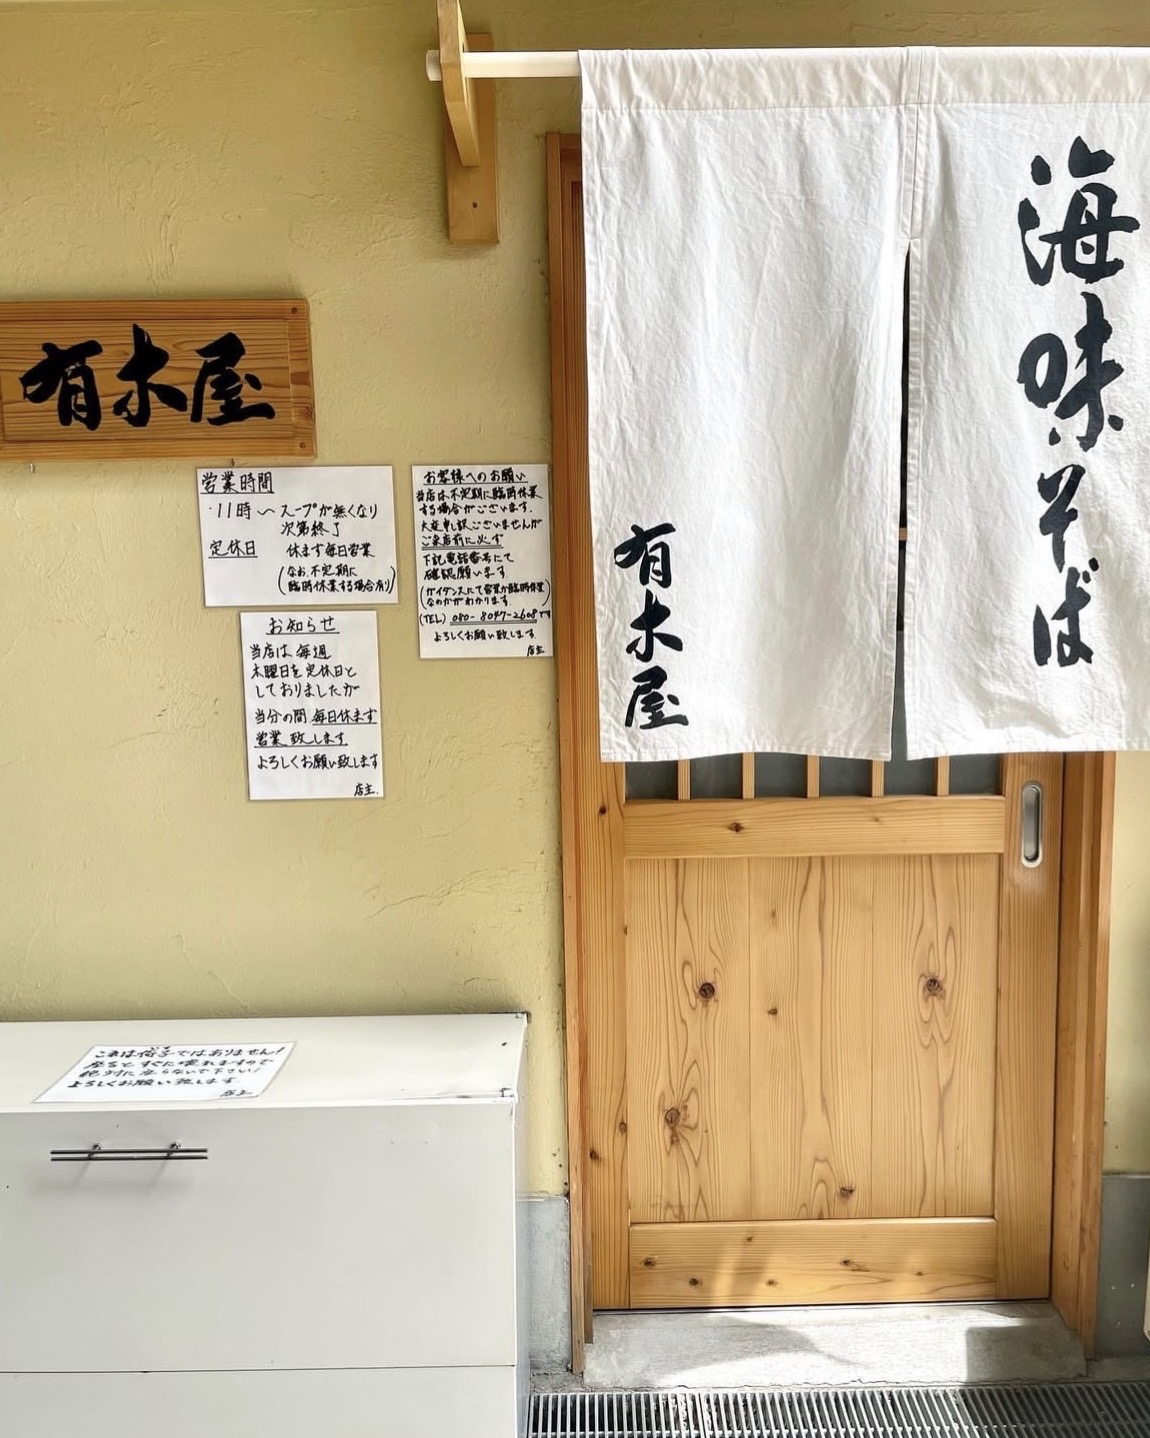 海味そば
有木屋
有木屋
営業時間
・11時〜スープが無くなり
次第終了
定休日 休まず毎日営業
(なお、不定期に
臨時休業する場合有り)
お客様へのお願い
当店は不定期に臨時休業
する場合がございます。
大変申し訳ございませんが
ご来店前に必ず
下記電話番号にて
確認願います
(ガイダンスにて営業か臨時休業
なのかがわかります。)
(TEL) 080-8047-2608です
よろしくお願い致します。
店主
お知らせ
当店は、毎週
木曜日を定休日と
しておりましたが
当分の間、毎日休まず
営業致します。
よろしくお願い致します
店主.
これは椅子ではありません!
座るとすぐに壊れますので
絶対に座らないで下さい!
よろしくお願い致します。
店主